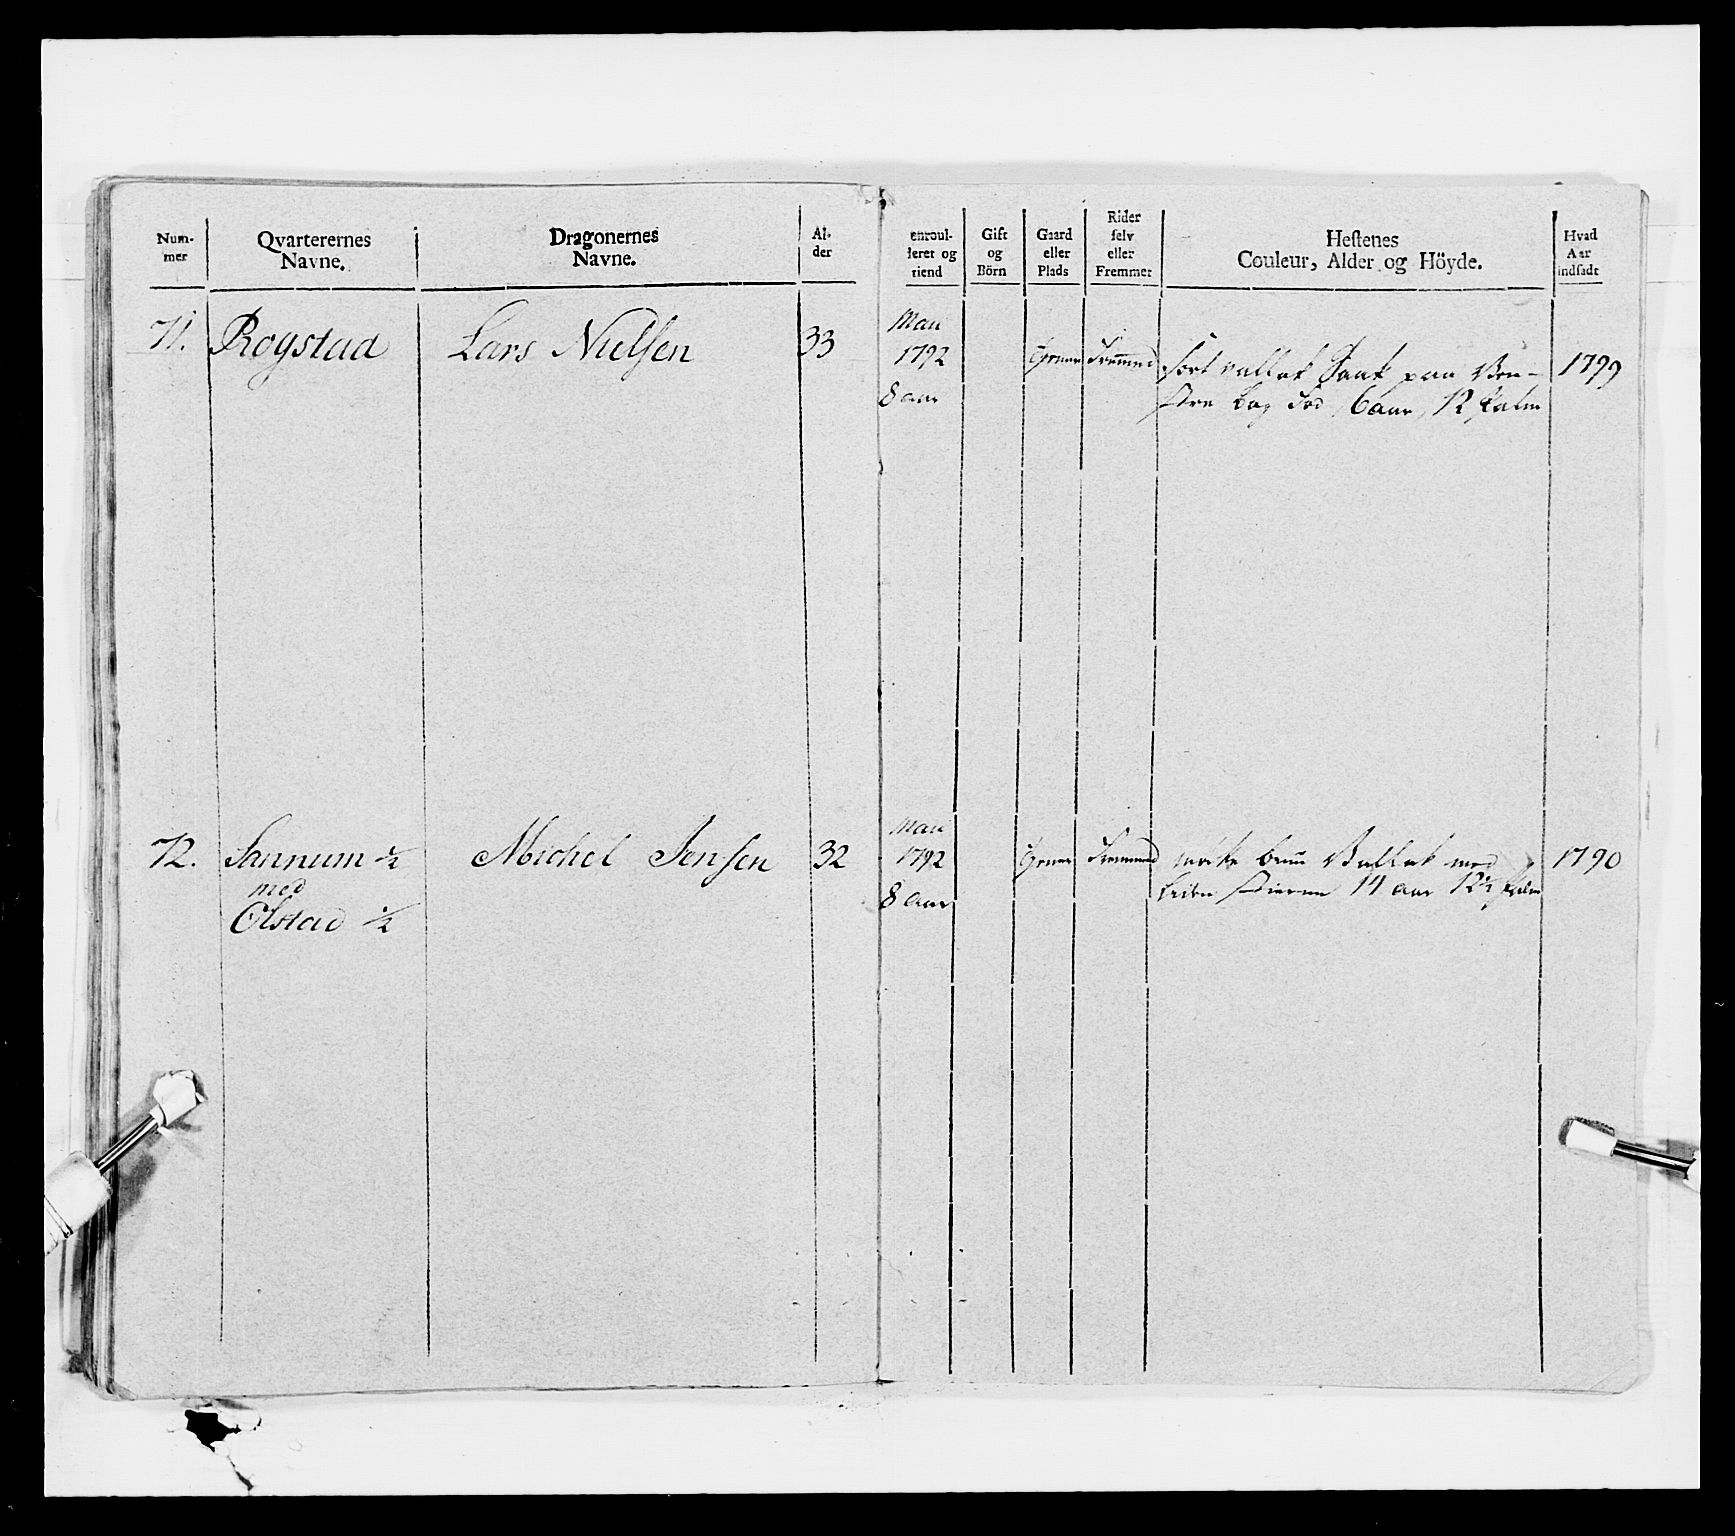 Num-
mer
Qvarterernes
Navne.
Dragonernes
Navne.
Al-
der
enroul-
leret og
tiend
Gift
og
Börn
Gaard
eller
Plads
Rider
selv
eller
Fremmet
Hestenes
Couleur, Alder og Höyde.
Hvad
Aar
indsadt
71. Rogstad Lars Nielsen 33
Maii
1792
8 aar
Fremmed
Sort vallak paa Ven-
stre bag Fod, 6 aar, 12 Palm
1799
72. Sannum ½ Michel Jensen 32
med
Olstad ½
Maii
1792
8 aar
Fremmed
mørke bruun Vallak med
liden Stierne 14 aar 12½ Palm
1790